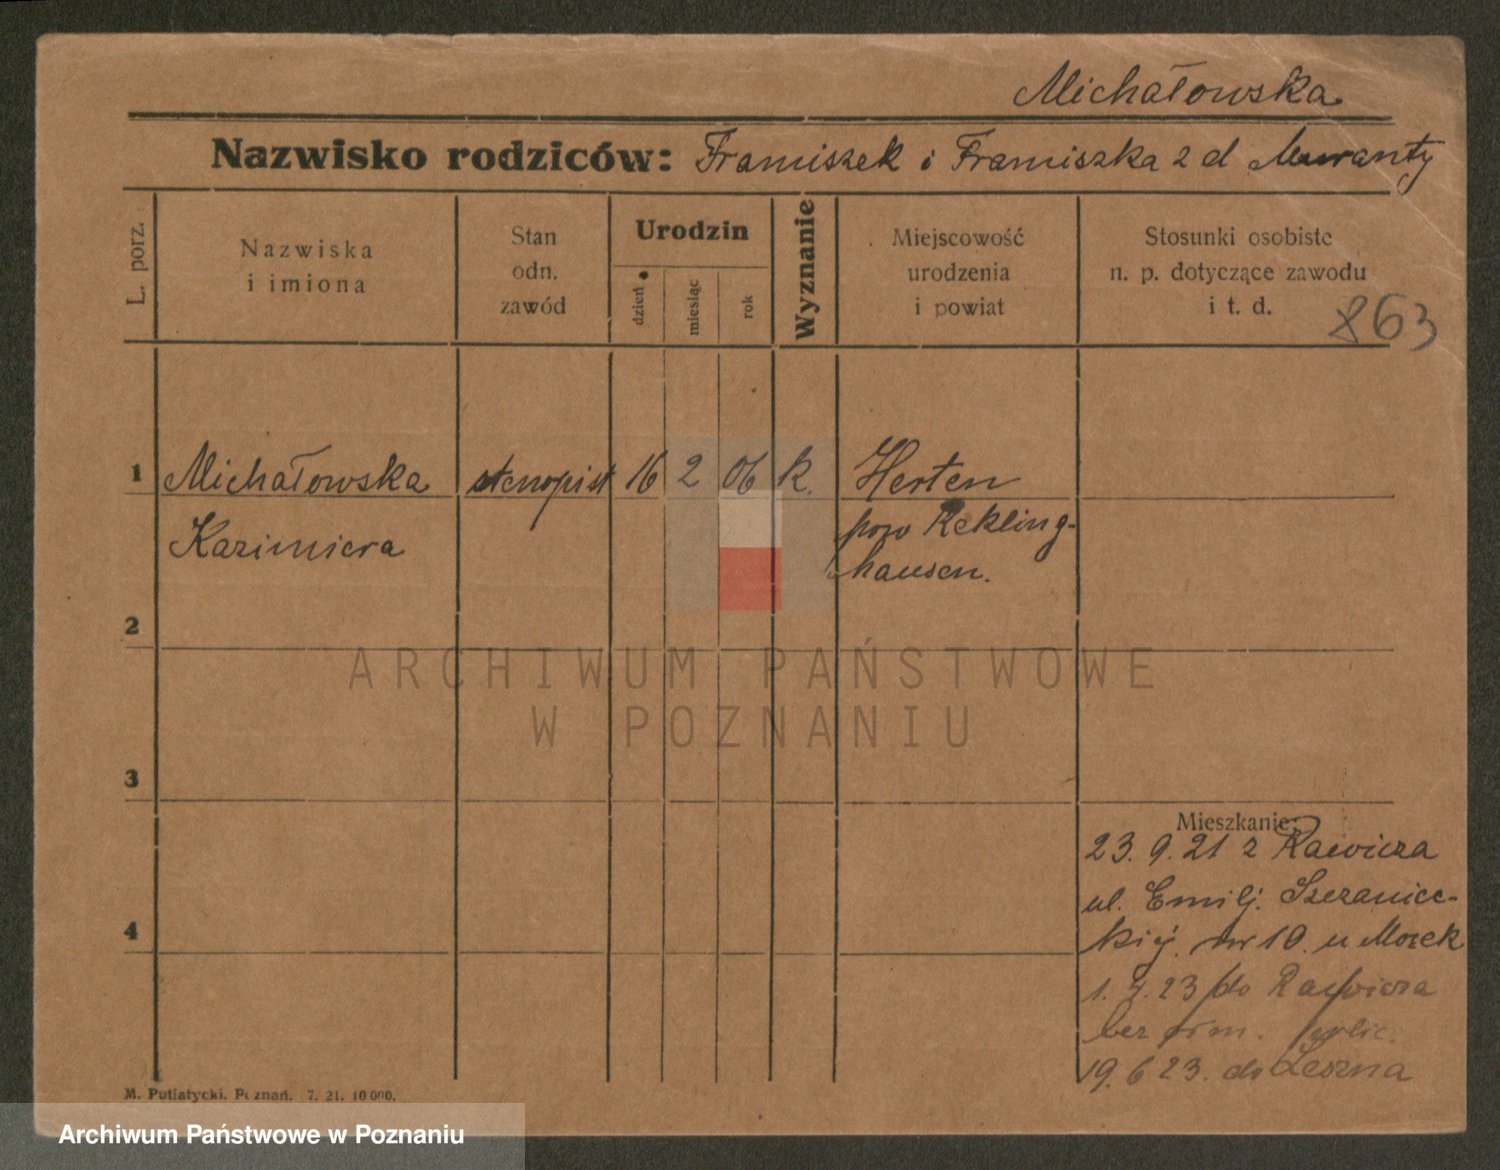 Michałowska
Nazwisko rodziców: Franciszek i Franciszka z d Muranty
L. porz.
Nazwiska
i imiona
Stan
odn.
zawód
Urodzin
dzień
miesiąc
rok
Wyznanie
Miejscowość
urodzenia
i powiat
Stosunki osobiste
n. p. dotyczące zawodu
i t. d.
863
1 Michałowska stenopist 16 2 06 k. Herten
Kazimiera pow Rekling-
hausen.
2
3
4
Mieszkanie:
23. 9. 21 z Rawicza
ul. Emilj. Szczaniec-
kiej. nr 10. u Mocek
1. 4. 23 do Rawicza
bez polic.
19. 6 23. do Leszna
M. Putiatycki, Poznań. 7. 21. 10 000.
ARCHIWUM PAŃSTWOWE
W POZNANIU
Archiwum Państwowe w Poznaniu